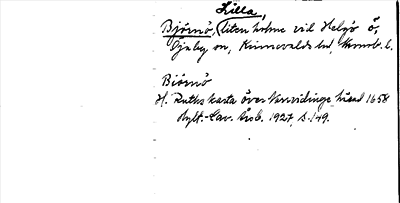 Lilla,
Björnö, liten holme vid Helgö ö,
Öjaby sn, Kinnevalds hd, Kronob. l.
Biörnö
H. Ruths karta över Norvidinge härad 1658
Hylt.-Cav. årsb. 1927, s. 149.